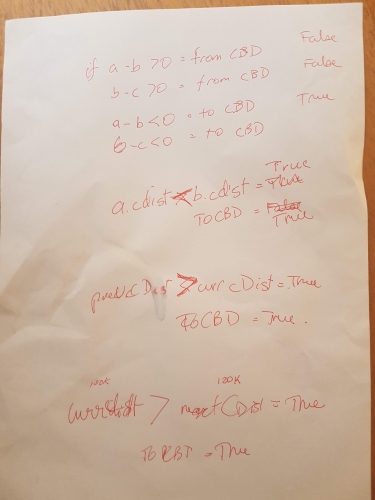 if a-b>0 = from CBD False
b-c>0 = from CBD False
a-b<0 = to CBD True
b-c<0 = to CBD
True
a.cdist < b.cdist = True
TOCBD = False
True
CDist > curr cDist = True
TOCBD = True.
100K 120K
currdist > next CDist = True
TO = True